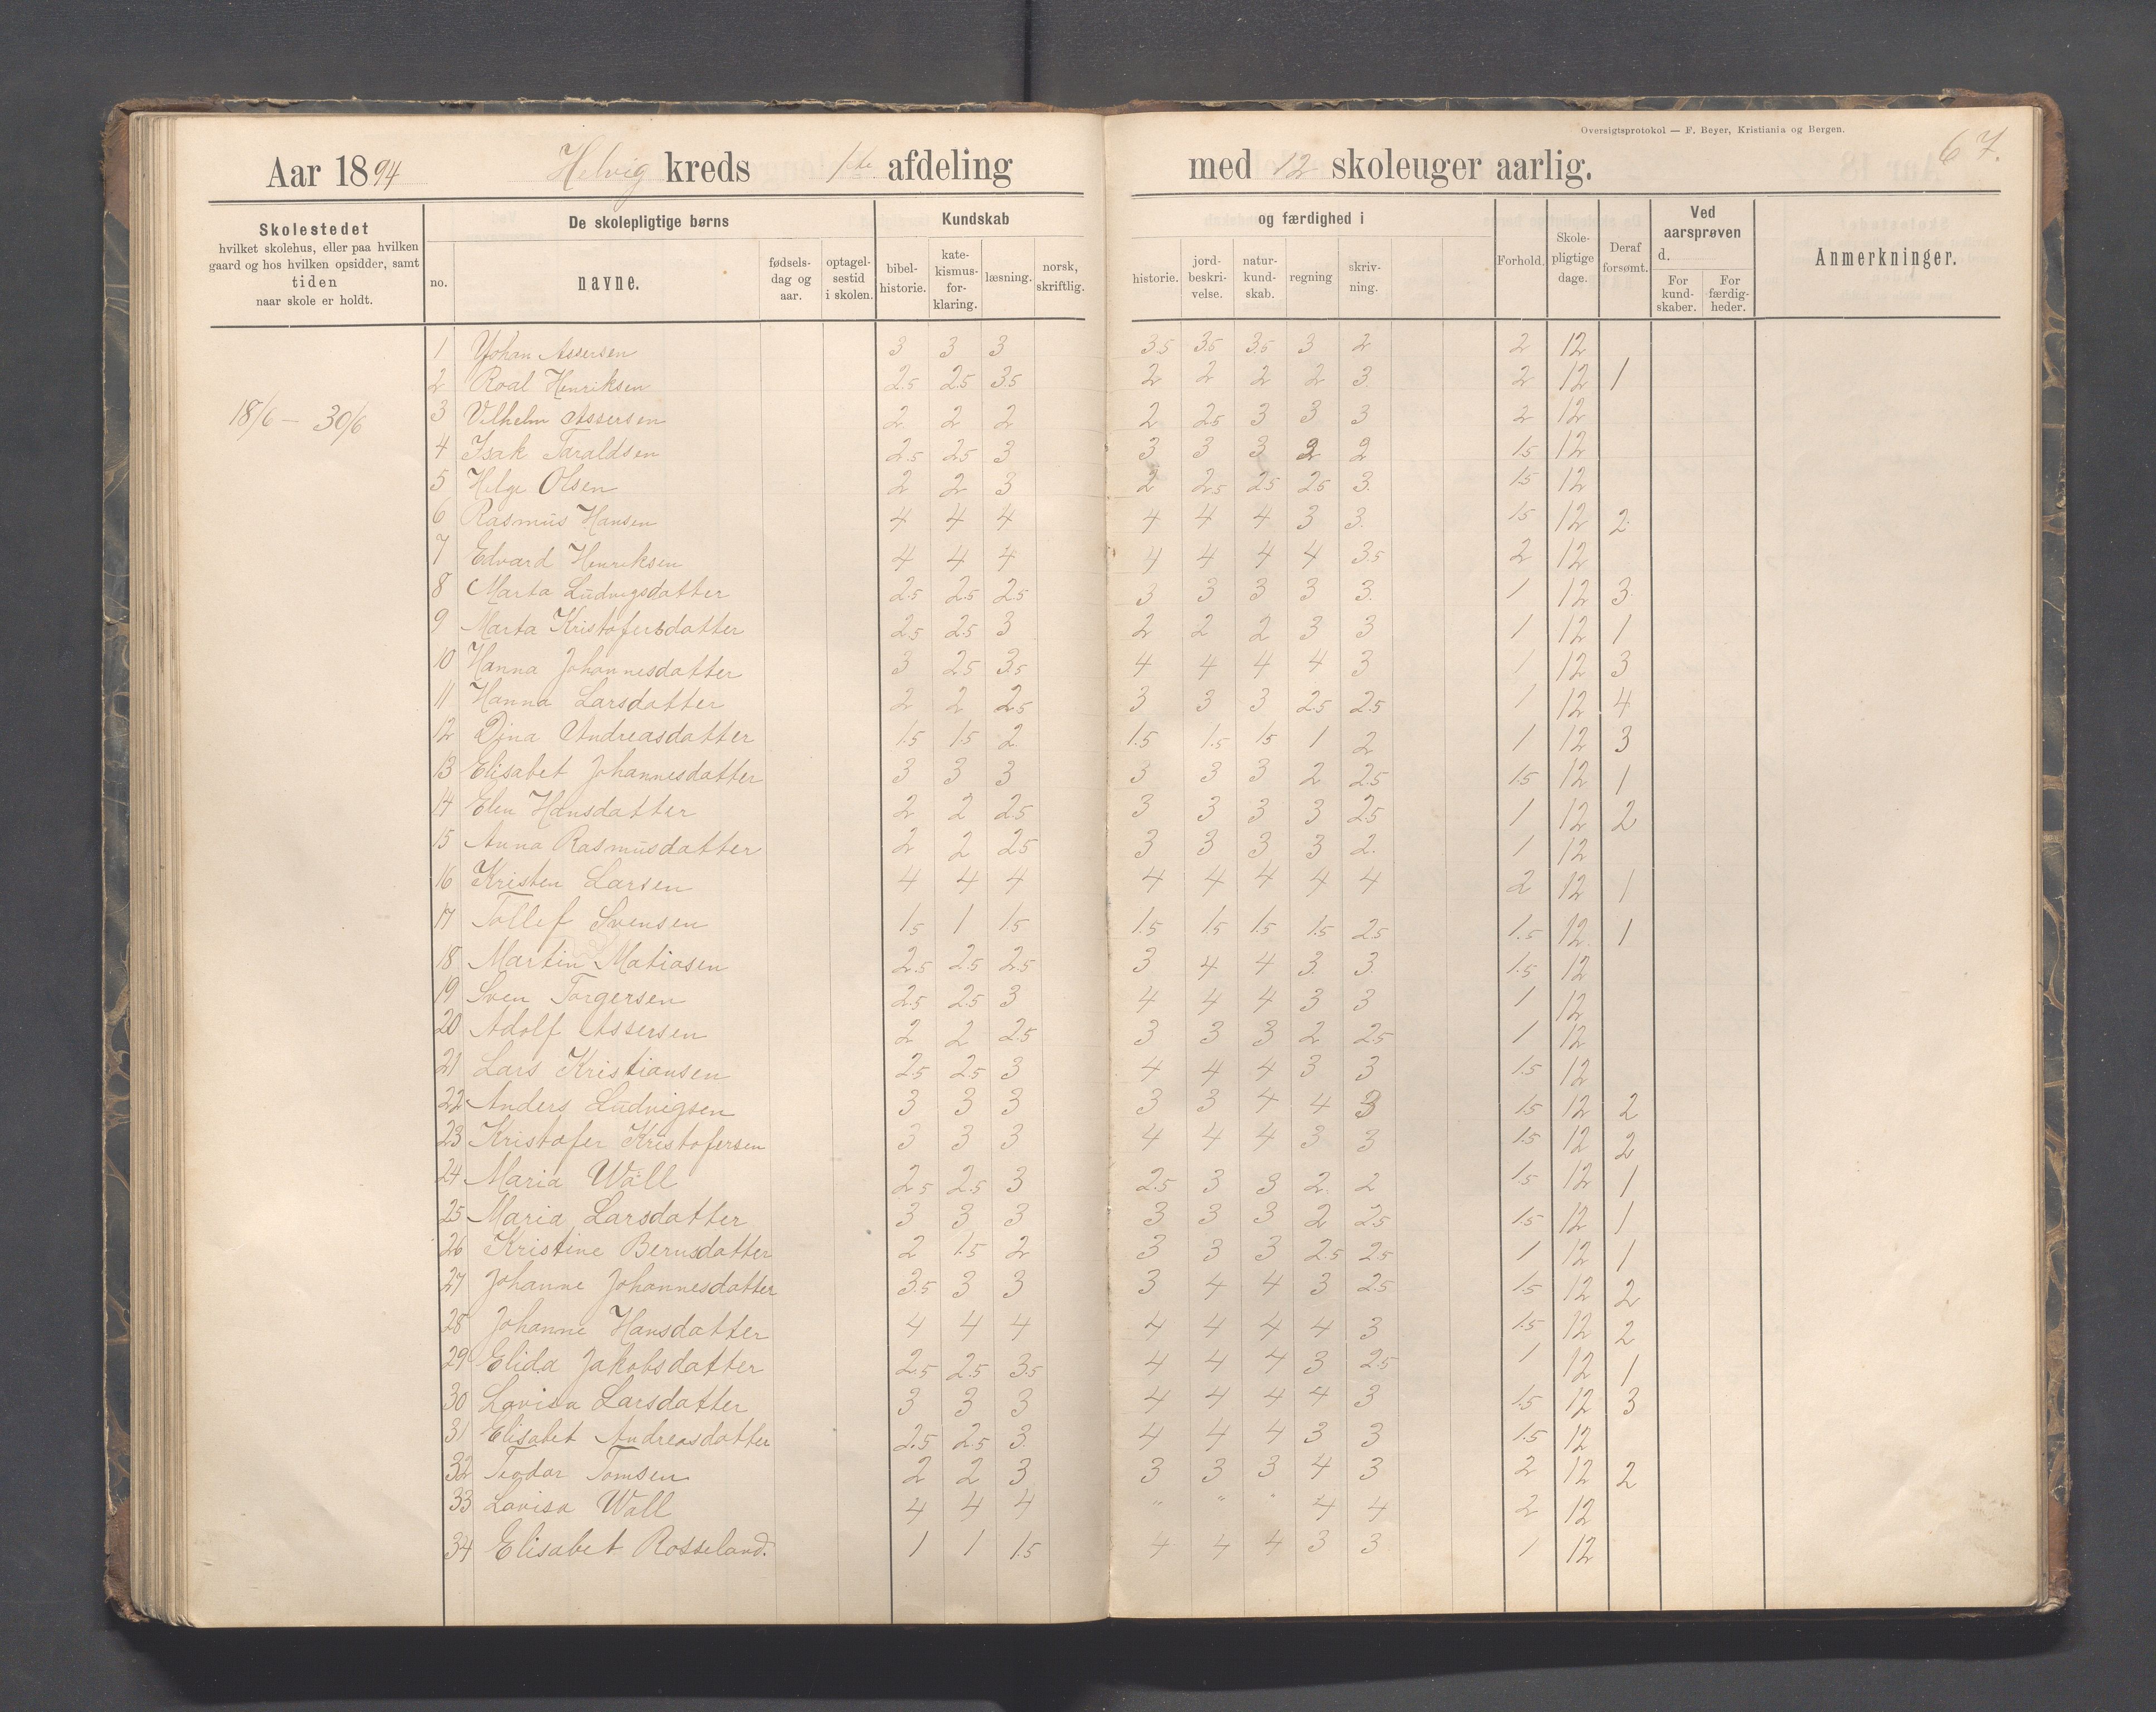 Oversigtsprotokol — F. Beyer, Kristiania og Bergen.
67.
Aar 1894 Helvig kreds 1ste afdeling med 12 skoleuger aarlig.
Skolestedet hvilket skolehus, eller paa hvilken gaard og hos hvilken opsidder, samt tiden naar skole er holdt.
De skolepligtige børns
no. navne. fødselsdag og aar. optagelsestid i skolen.
Kundskab og færdighed i
bibelhistorie. katekismusforklaring. læsning. norsk, skriftlig. historie. jordbeskrivelse. naturkundskab. regning skrivning.
Forhold. Skolepligtige dage. Deraf forsømt.
Ved aarsprøven d. For kundskaber. For færdigheder.
Anmerkninger.
18/6 — 30/6
1 Johan Assersen 3 3 3 3.5 3.5 3.5 3 2 2 12
2 Roal Henriksen 2.5 2.5 3.5 2 2 2 2 3 2 12 1
3 Vilhelm Assersen 2 2 2 2 2.5 3 3 3 2 12
4 Isak Taraldsen 2.5 2.5 3 3 3 3 2 2 1.5 12
5 Helge Olsen 2 2 3 2 2.5 2.5 2.5 3. 1.5 12
6 Rasmus Hansen 4 4 4 4 4 4 3 3. 1.5 12 2
7 Edvard Henriksen 4 4 4 4 4 4 4 3.5 2 12
8 Marta Ludvigsdatter 2.5 2.5 2.5 3 3 3 3 3. 1 12 3
9 Marta Kristofersdatter 2.5 2.5 3 2 2 2 3 3 1 12 1
10 Hanna Johannesdatter 3 2.5 3.5 4 4 4 4 3 1 12 3
11 Hanna Larsdatter 2 2 2.5 3 3 3 2.5 2.5 1 12 4
12 Dina Andreasdatter 1.5 1.5 2. 1.5 1.5 1.5 1 2 1 12 3
13 Elisabet Johannesdatter 3 3 3 3 3 3 2 2.5 1.5 12 1
14 Elen Hansdatter 2 2 2.5 3 3 3 3 2.5 1 12 2
15 Anna Rasmusdatter 2 2 2.5 3 3 3 3 2. 1 12
16 Kristen Larsen 4 4 4 4 4 4 4 4 2 12 1
17 Tollef Svensen 1.5 1 1.5 1.5 1.5 1.5 1.5 2.5 1.5 12 1
18 Martin Matiasen 2.5 2.5 2.5 3 4 4 3. 3. 1.5 12
19 Sven Torgersen 2.5 2.5 3 4 4 4 3 3 1 12
20 Adolf Assersen 2 2 2.5 3 3 3 2 2.5 1 12
21 Lars Kristiansen 2.5 2.5 3 4 4 4 3 3 1.5 12
22 Anders Ludvigsen 3 3 3 3 3 4 4 3 1.5 12 2
23 Kristofer Kristofersen 3 3 3 4 4 4 3 3 1.5 12 2
24 Maria Wall 2.5 2.5 3 2.5 3 3 2. 2 1.5 12 1
25 Maria Larsdatter 3 3 3 3 3 3 2 2.5 1.5 12 1
26 Kristine Bernsdatter 2 1.5 2 3 3 3 2.5 2.5 1 12 1
27 Johanne Johannesdatter 3.5 3 3 3 4 4 3 2.5 1.5 12 2
28 Johanne Hansdatter 4 4 4 4 4 4 4 3 1.5 12 2
29 Elida Jakobsdatter 2.5 2.5 3.5 4 4 4 3 2.5 1 12 1
30 Lovisa Larsdatter 3 3 3 4 4 4 4 3 1.5 12 3
31 Elisabet Andreasdatter 2.5 2.5 3. 4 4 4 3 3 1.5 12
32 Teodor Tomsen 2 2 3 3 3 3 4 3 2 12 2
33 Lovisa Wall 4 4 4 " " " 4 4 2 12
34 Elisabet Rosseland. 1 1 1.5 4 4 4 3 3 1 12